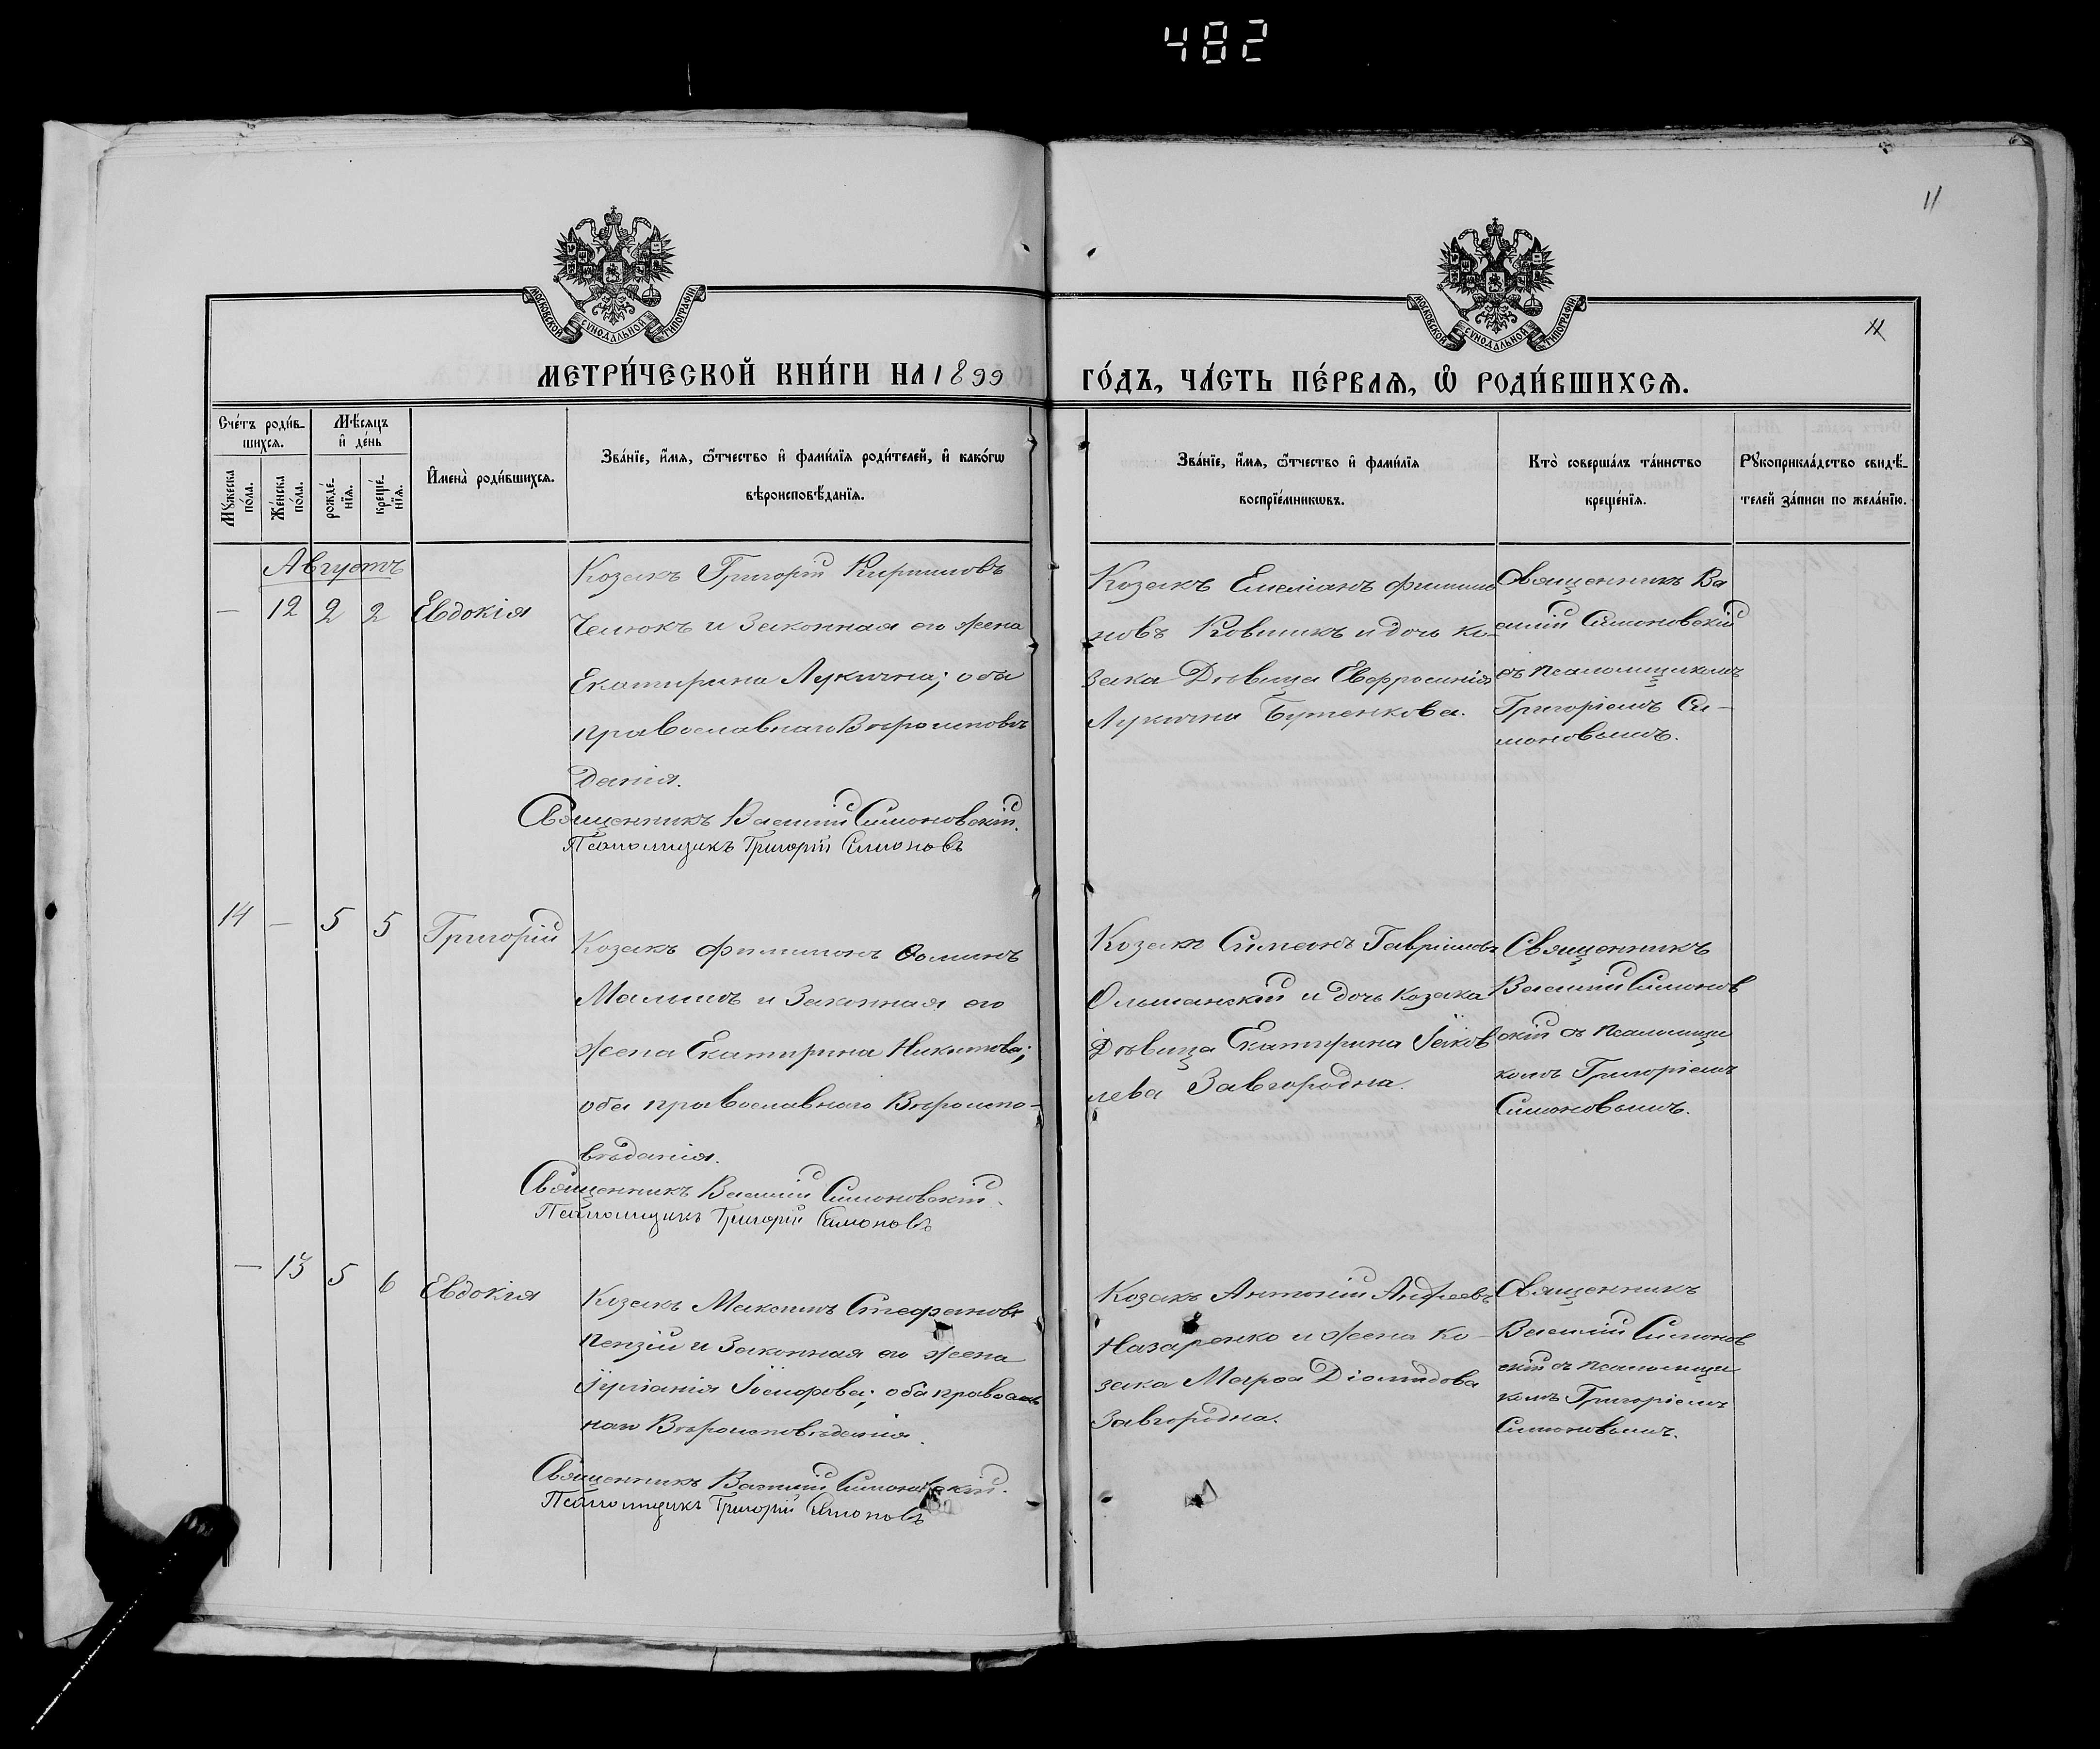 482
11
МОСКОВСКОЙ СѴНОДАЛЬНОЙ ТИПОГРАФІИ
МОСКОВСКОЙ СѴНОДАЛЬНОЙ ТИПОГРАФІИ
11
МЕТРИ́ЧЕСКОЙ КНИ́ГИ НА 1899
ГО́ДЪ, ЧА́СТЬ ПЕ́РВАѦ, Ѽ РОДИ́ВШИХСѦ.
Сче́тъ роди́в-
шихсѧ.
Мꙋ́жеска по́ла.
Же́нска по́ла.
Мѣ́сѧцъ
и҆ де́нь
рожде́-
нїѧ.
креще́-
нїѧ.
И҆мена̀ роди́вшихсѧ.
Зва́нїе, и҆́мѧ, ѻ҆́тчество и҆ фами́лїѧ роди́телей, и҆ како́гѡ
вѣроисповѣ́данїѧ.
Зва́нїе, и҆́мѧ, ѻ҆́тчество и҆ фами́лїѧ
воспрїе́мникѡвъ.
Кто̀ соверша́лъ та́инство
креще́нїѧ.
Рꙋкоприкла́дство свидѣ́-
телей за́писи по жела́нїю.
Августъ
— 12 2 2 Евдокія
Козакъ Григорій Кирилловъ
Челюкъ и Законная его жена
Екатирина Лукична; оба
православнаго Вѣроисповѣ
данія.
Священникъ Василій Симоновскій.
Псаломщикъ Григорій Симоновъ
Козакъ Емеліанъ Филимо
новъ Ковшикъ и дочь ко-
зака Дѣвица Евфросинія
Лукична Бутенкова.
Священникъ Ва
силій Симоновскій
съ псаломщикомъ
Григоріемъ Си-
моновымъ.
14 — 5 5 Григорій
Козакъ Филимонъ Ѳоминъ
Малышъ и Законная его
жена Екатирина Никитова;
оба православнаго Вѣроиспо-
вѣданія.
Священникъ Василій Симоновскій.
Псаломщикъ Григорій Симоновъ
Козакъ Симеонъ Гавріиловъ
Ольшанскій и дочь козака
Дѣвица Екатирина Іаков
лева Завгородна.
Священникъ
Василій Симонов
скій съ псаломщи
комъ Григоріемъ
Симоновымъ.
— 13 5 6 Евдокія
Козакъ Максимъ Стефановъ
Пензій и Законная его жена
Іуліанія Іосифова; оба православ
наго Вѣроисповѣданія.
Священникъ Василій Симоновскій.
Псаломщикъ Григорій Симоновъ
Козакъ Антоній Андреевъ
Назаренко и жена ко-
зака Марѳа Діомидова
Завгородна.
Священникъ
Василій Симонов
скій съ псаломщи
комъ Григоріемъ
Симоновымъ.